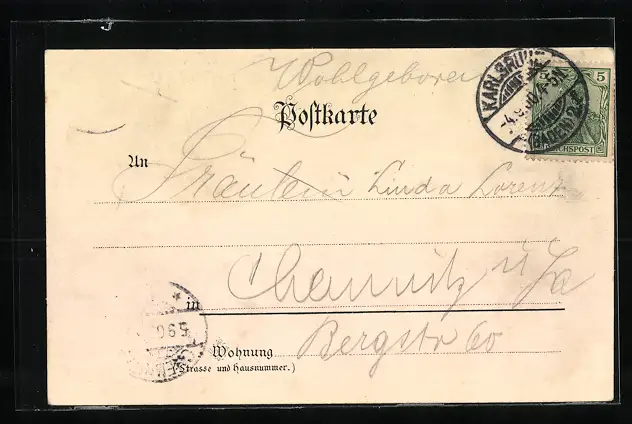 Wohlgeboren
Postkarte
An Fräulein Linda Lorenz
in Chemnitz i/Sa
Bergstr 60
Wohnung
(Strasse und Hausnummer.)
KARLSRUHE
4.9.00
(BADEN)
5
REICHSPOST
5.9.0
CHEMNITZ